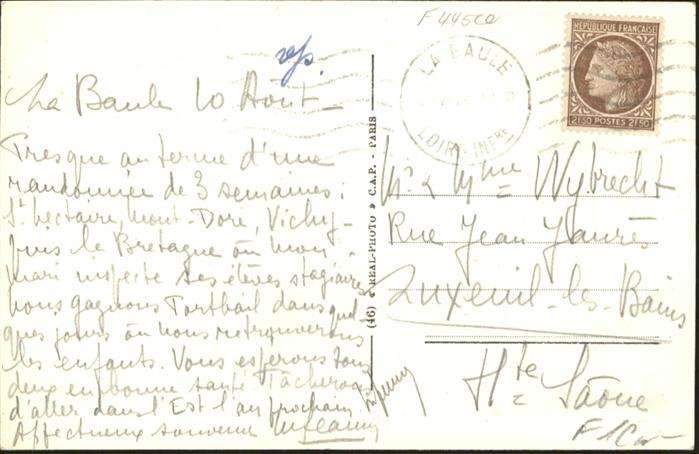 F445CO
rép
La Baule 10 Août
Presque au terme d'une
randonnée de 3 semaines :
St. Nectaire, Mont-Dore, Vichy-
puis la Bretagne où mon
mari inspecte ses élèves stagiaires
nous gagnons Portbail dans quel
ques jours où nous retrouverons
les enfants. Vous espérons tous
deux en bonne santé Tâcherons
d'aller dans l'Est l'an prochain
Affectueux souvenir
(46) REAL-PHOTO C.A.P. - PARIS
LA BAULE
LOIRE INFRE
REPUBLIQUE FRANÇAISE
2F50 POSTES 2F50
Mr & Mme Wybrecht
Rue Jean Jaurès
Luxeuil-les-Bains
Hte Saône